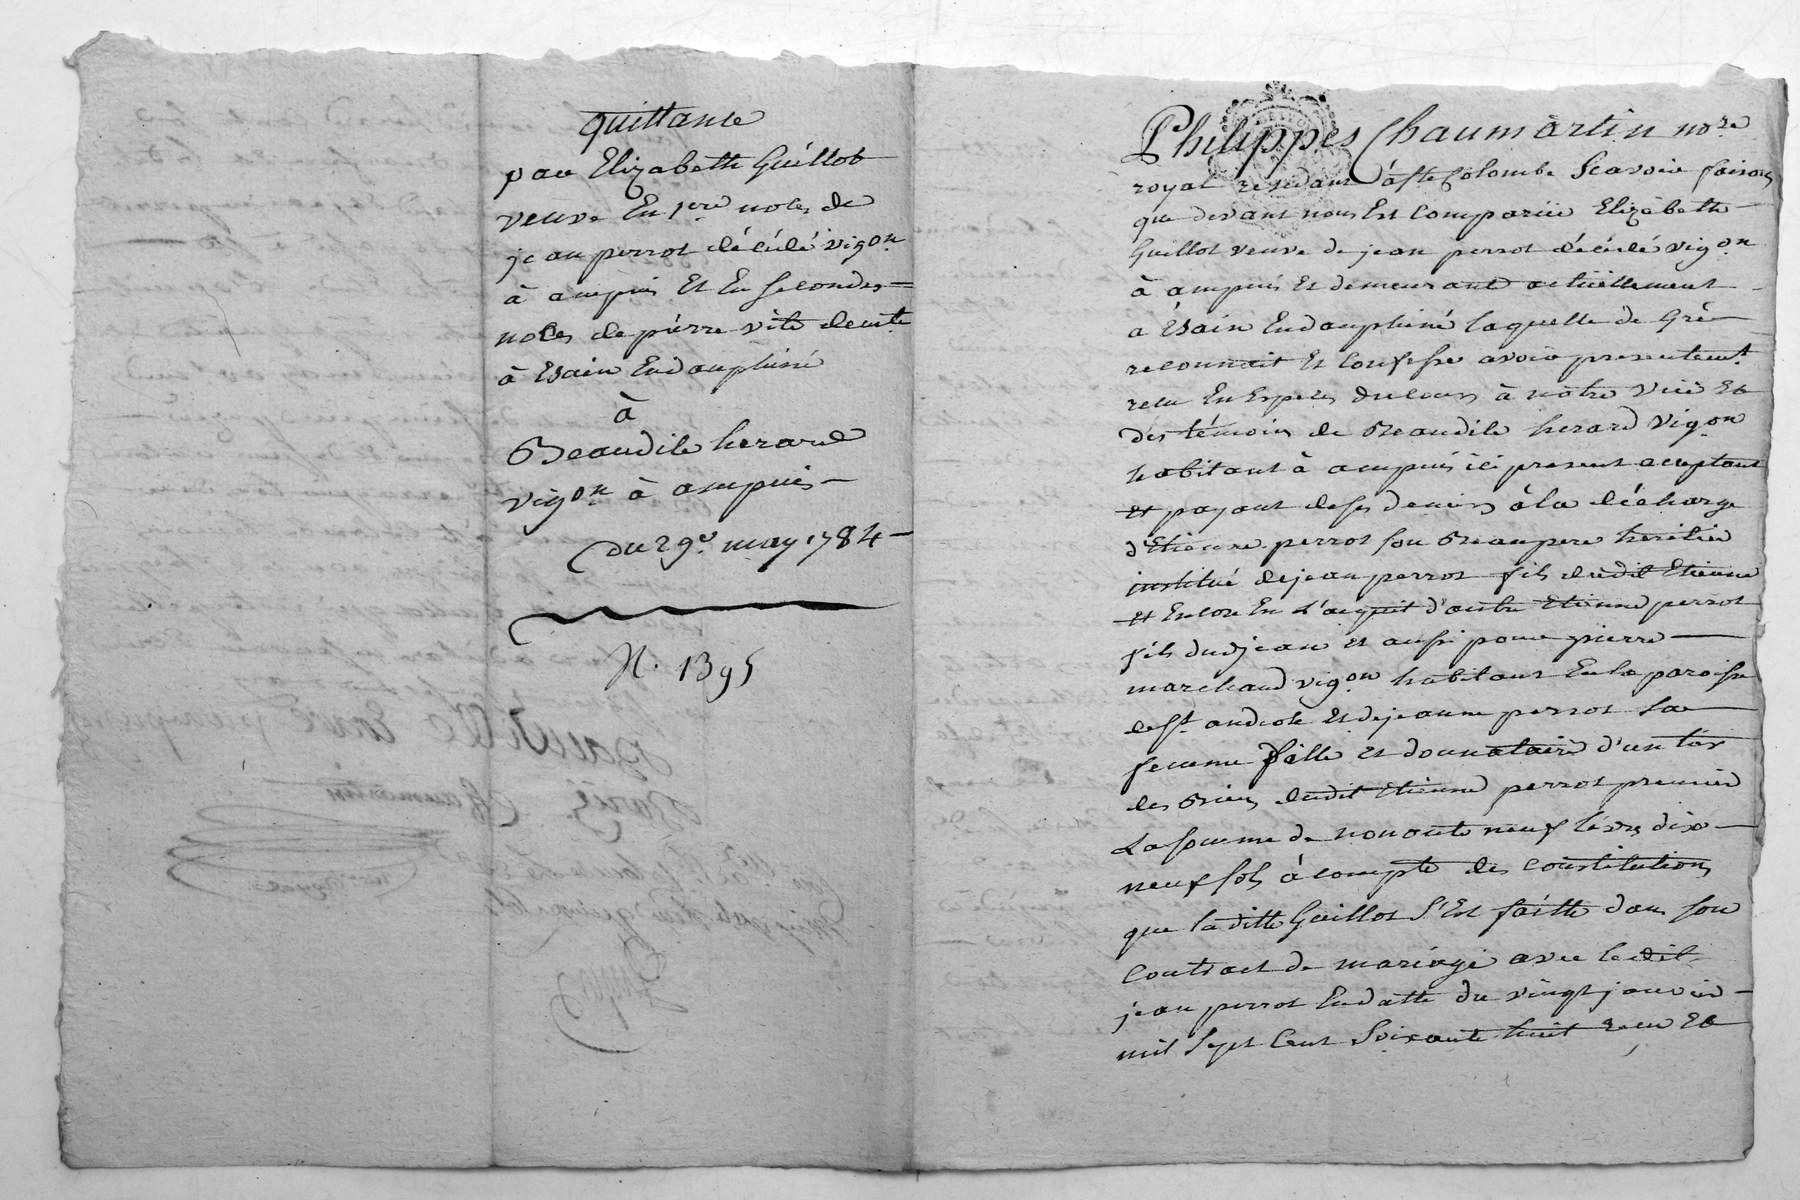 quittance
par Elizabeth Guillot
veuve En 1ere noces de
jean perrot décédé vigon
à ampuis Et En secondes
noces de pierre vite demt
à Esain En dauphiné
à
Beaudile herard
vigon à ampuis
du 29e may 1784
N. 1395
Philippes Chaumartin nore
royal residant à ste Colombe Scavoir faisons
que devant nous Est Comparüe Elizabeth
Guillot veuve de jean perrot décédé vigon
à ampuis Et demeurant actüellement
a Esain En dauphiné laquelle de Gré
reconnait Et Confesse avoir presentement
recu En Especes du cours à notre vüe Et
des témoins de Beaudile herard vigon
habitant à ampuis ici present acceptant
et payant de ses deniers à la décharge
d'Etienne perrot son Beaupere heritier
institué de jean perrot fils dudit Etienne
et Encore En L'acquit d'autre Etienne perrot
fils dud jean et aussi pour pierre
marchand vigon habitant En la paroisse
de st andeole Et de jeanne perrot Sa
femme fille Et donnataire d'un tiers
des Biens dudit Etienne perrot premier
La somme de nonante neuf livres dix
neuf sols à compte des constitutions
que la ditte Guillot S'Est faitte dans son
contract de mariage avec le dit
jean perrot En datte du vingt janvier
mil Sept Cent Soixante huit recu Et